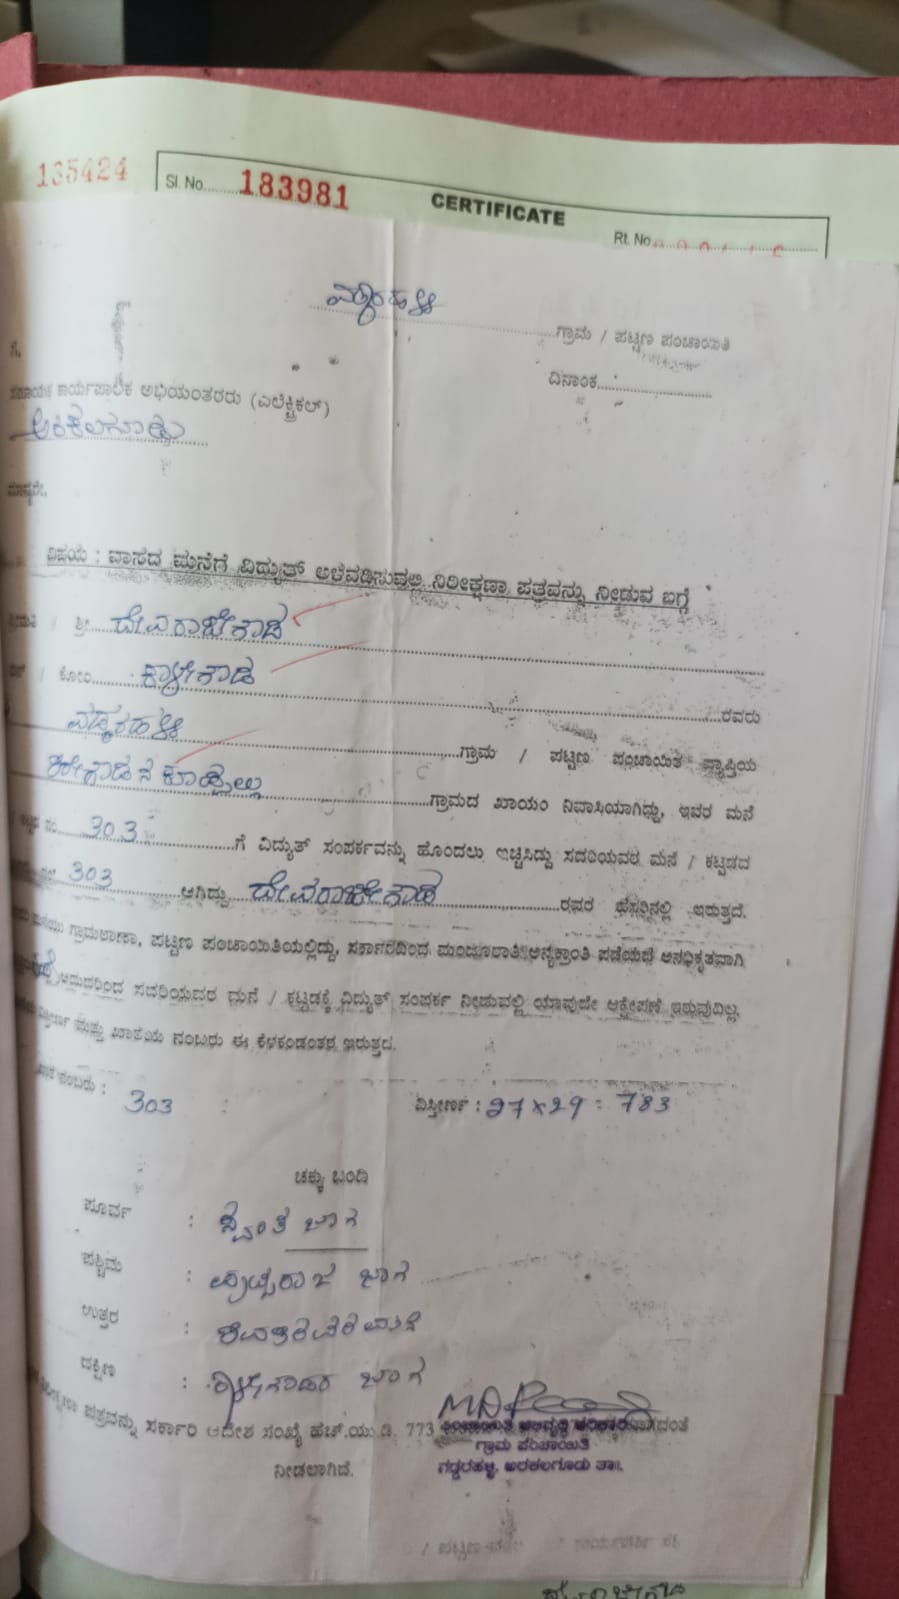 135424
Sl. No. 183981
CERTIFICATE
Rt. No.
ಗ್ರಾಮ / ಪಟ್ಟಣ ಪಂಚಾಯಿತಿ
ದಿನಾಂಕ
ಗೆ,
ಸಹಾಯಕ ಕಾರ್ಯಪಾಲಕ ಅಭಿಯಂತರರು (ಎಲೆಕ್ಟ್ರಿಕಲ್)
ಅರಕಲಗೂಡು
ಮಾನ್ಯರೇ,
ವಿಷಯ : ವಾಸದ ಮನೆಗೆ ವಿದ್ಯುತ್ ಅಳವಡಿಸುವಲ್ಲಿ ನಿರೀಕ್ಷಣಾ ಪತ್ರವನ್ನು ನೀಡುವ ಬಗ್ಗೆ
ಶ್ರೀಮತಿ / ಶ್ರೀ ದೇವರಾಜೇಗೌಡ
ಬಿನ್ / ಕೋಂ ಕಾಳೇಗೌಡ ರವರು
ಗ್ರಾಮ / ಪಟ್ಟಣ ಪಂಚಾಯಿತಿ ವ್ಯಾಪ್ತಿಯ
ಗ್ರಾಮದ ಖಾಯಂ ನಿವಾಸಿಯಾಗಿದ್ದು, ಇವರ ಮನೆ
303 ಗೆ ವಿದ್ಯುತ್ ಸಂಪರ್ಕವನ್ನು ಹೊಂದಲು ಇಚ್ಚಿಸಿದ್ದು ಸದರಿಯವರ ಮನೆ / ಕಟ್ಟಡದ
303 ಆಗಿದ್ದು ದೇವರಾಜೇಗೌಡ ರವರ ಹೆಸರಿನಲ್ಲಿ ಇರುತ್ತದೆ.
ಗ್ರಾಮಠಾಣಾ, ಪಟ್ಟಣ ಪಂಚಾಯಿತಿಯಲ್ಲಿದ್ದು, ಸರ್ಕಾರದಿಂದ ಮಂಜೂರಾತಿ/ಅನ್ಯಕ್ರಾಂತಿ ಪಡೆಯದೆ ಅನಧಿಕೃತವಾಗಿ
ಆದುದರಿಂದ ಸದರಿಯವರ ಮನೆ / ಕಟ್ಟಡಕ್ಕೆ ವಿದ್ಯುತ್ ಸಂಪರ್ಕ ನೀಡುವಲ್ಲಿ ಯಾವುದೇ ಆಕ್ಷೇಪಣೆ ಇರುವುದಿಲ್ಲ.
ವಿಸ್ತೀರ್ಣ ಮತ್ತು ಖಾತೆಯ ನಂಬರು ಈ ಕೆಳಕಂಡಂತೆ ಇರುತ್ತದೆ.
ನಂಬರು : 303 ವಿಸ್ತೀರ್ಣ : 27 x 29 = 783
ಚಕ್ಕು ಬಂದಿ
ಪೂರ್ವ : ಸ್ವಂತ ಜಾಗ
ಪಶ್ಚಿಮ : ಜಾಗ
ಉತ್ತರ :
ದಕ್ಷಿಣ : ಜಾಗ
ಪತ್ರವನ್ನು ಸರ್ಕಾರಿ ಆದೇಶ ಸಂಖ್ಯೆ ಹೆಚ್.ಯು.ಡಿ. 773
ನೀಡಲಾಗಿದೆ.
ಪಂಚಾಯಿತಿ ಅಭಿವೃದ್ಧಿ ಅಧಿಕಾರಿ
ಗ್ರಾಮ ಪಂಚಾಯಿತಿ
ಅರಕಲಗೂಡು ತಾ.